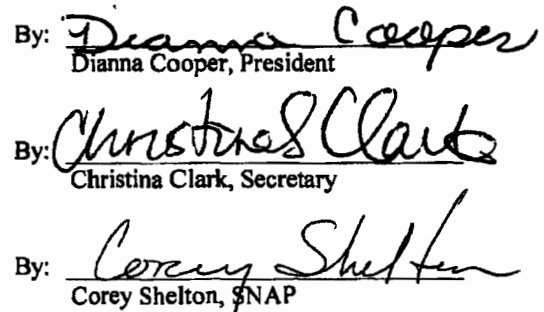 By: Dianna Cooper
Dianna Cooper, President
By: Christina S Clark
Christina Clark, Secretary
By: Corey Shelton
Corey Shelton, SNAP